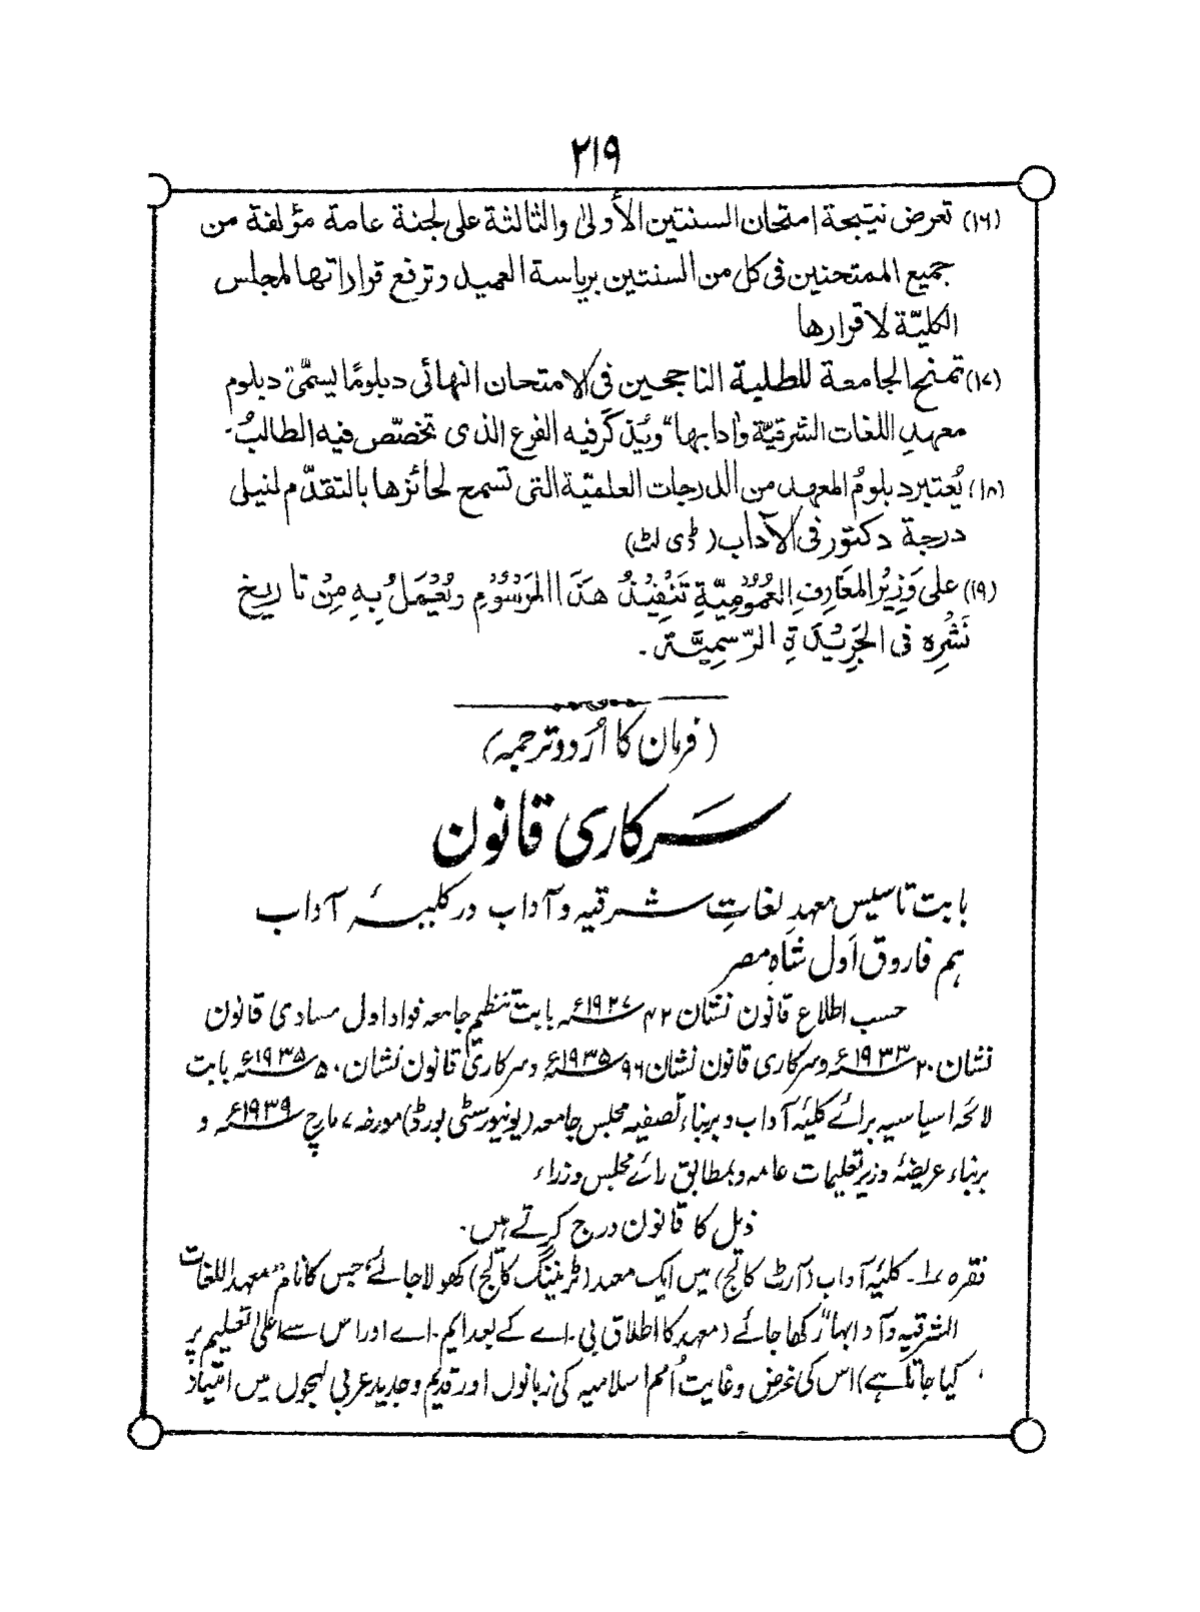 ۲۱۹
(۱۶) تعرض نتيجة امتحان السنتين الأولىٰ والثالثة على لجنة عامة مؤلفة من
جميع الممتحنين فى كل من السنتين برياسة العميد وترفع قراراتها لمجلس
الكليّة لاقرارها
(۱۷) تمنح الجامعة للطلبة الناجحين فى الامتحان النهائى دبلومًا يسمّىٰ دبلوم
معهدِ اللغات الشرقيّة وادابها" ويُذكَر فيه الفرع الذى تخصّص فيه الطالبُ۔
(۱۸) يُعتبر دبلومُ المعهد من الدرجات العلميّة التى تسمح لحائزها بالتقدّم لنيلى
درجة دكتور فى الآداب (ڈی لٹ)
(۱۹) على وَزِيْرِ المعَارِفِ العُمُوْمِيَّةِ تَنْفِيْذُ هٰذَا المَرْسُوْمِ ويُعْمَلُ بِهٖ مِنْ تاريخ
نَشْرِه فى الجَرِيْدَةِ الرّسمِيَّة۔
(فرمان کا اُردو ترجمہ)
سَرکاری قانون
بابت تاسیس معہدِ لغاتِ شرقیہ و آداب در کلیۂ آداب
ہم فاروق اَول شاہِ مصر
حسب اطلاع قانون نشان ۴۲ ۱۹۲۷ء بابت تنظیم جامعہ فواد اول مساوی قانون
نشان ۲۰ ۱۹۳۳ء و سرکاری قانون نشان ۹۶ ۱۹۳۵ء و سرکاری قانون نشان ۵۰ ۱۹۳۵ء بابت
لائحہ اساسیہ برائے کلیۂ آداب و بربناء تصفیہ مجلس جامعہ (یونیورسٹی بورڈ) مورخہ ۷ مارچ ۱۹۳۹ء و
بربناء عریضۂ وزیر تعلیمات عامہ و بمطابق رائے مجلس وزراء
ذیل کا قانون درج کرتے ہیں۔
فقرہ ۱۔ کلیۂ آداب (آرٹ کالج) میں ایک معہد (ٹریننگ کالج) کھولا جائے جس کا نام "معہد اللغات
الشرقیہ و آدابہا" رکھا جائے (معہد کا اطلاق بی۔اے کے بعد ایم۔اے اور اس سے اعلیٰ تعلیم پر
کیا جاتا ہے) اس کی غرض و غایت اُمم اسلامیہ کی زبانوں اور قدیم و جدید عربی لہجوں میں امتیاز